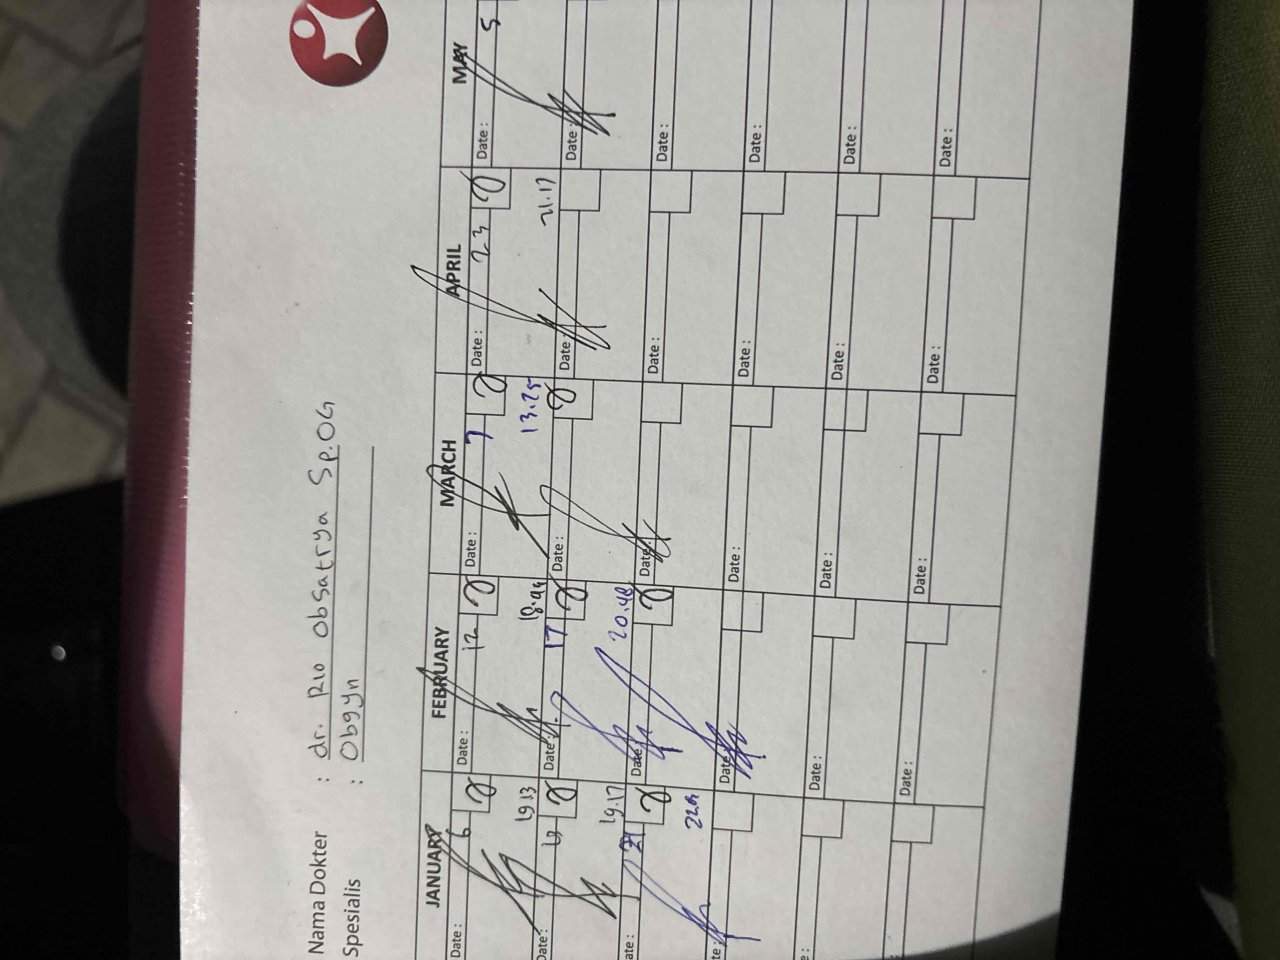 Nama Dokter : dr. Rio Obsatrya Sp.OG
Spesialis : Obgyn
JANUARY FEBRUARY MARCH APRIL MAY
Date : 6 Date : 12 Date : 7 Date : 23 Date : 5
19.13 18.44 13.25 21.17
Date : 13 Date : 17 Date : Date : Date :
19.17 20.48
ate : 21 Date : Date : Date : Date :
te : Date : Date : Date : Date :
e : Date : Date : Date : Date :
Date : Date : Date : Date :